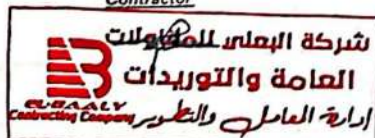 Contractor
شركة البعلى للمقاولات
العامة والتوريدات
EL-BAALY
Contracting Company
إدارة المعامل والتطوير